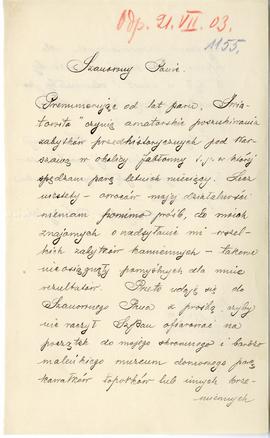 Odp. 21. VII. 03.
1155.
Szanowny Panie.
Prenumerując od lat paru „Świa-
towita" czynię amatorskie poszukiwania
zabytków przedhistorycznych pod War-
szawą w okolicy Jabłonny i. p. w której
spędzam parę letnich miesięcy. Lecz
niestety - owoców mojej działalności
niemam pomimo próśb, do moich
znajomych o nadsyłanie mi wszel-
kich zabytków kamiennych - takowe
nie osiągnęły pomyślnych dla mnie
rezultatów. Przeto udaję się do
Szanownego Pana z prośbą, czyby
nie raczył Sz. Pan ofiarować na
początek do mojego skromnego i bardzo
maleńkiego muzeum domowego parę
kawałków łopotków lub innych krze-
miennych